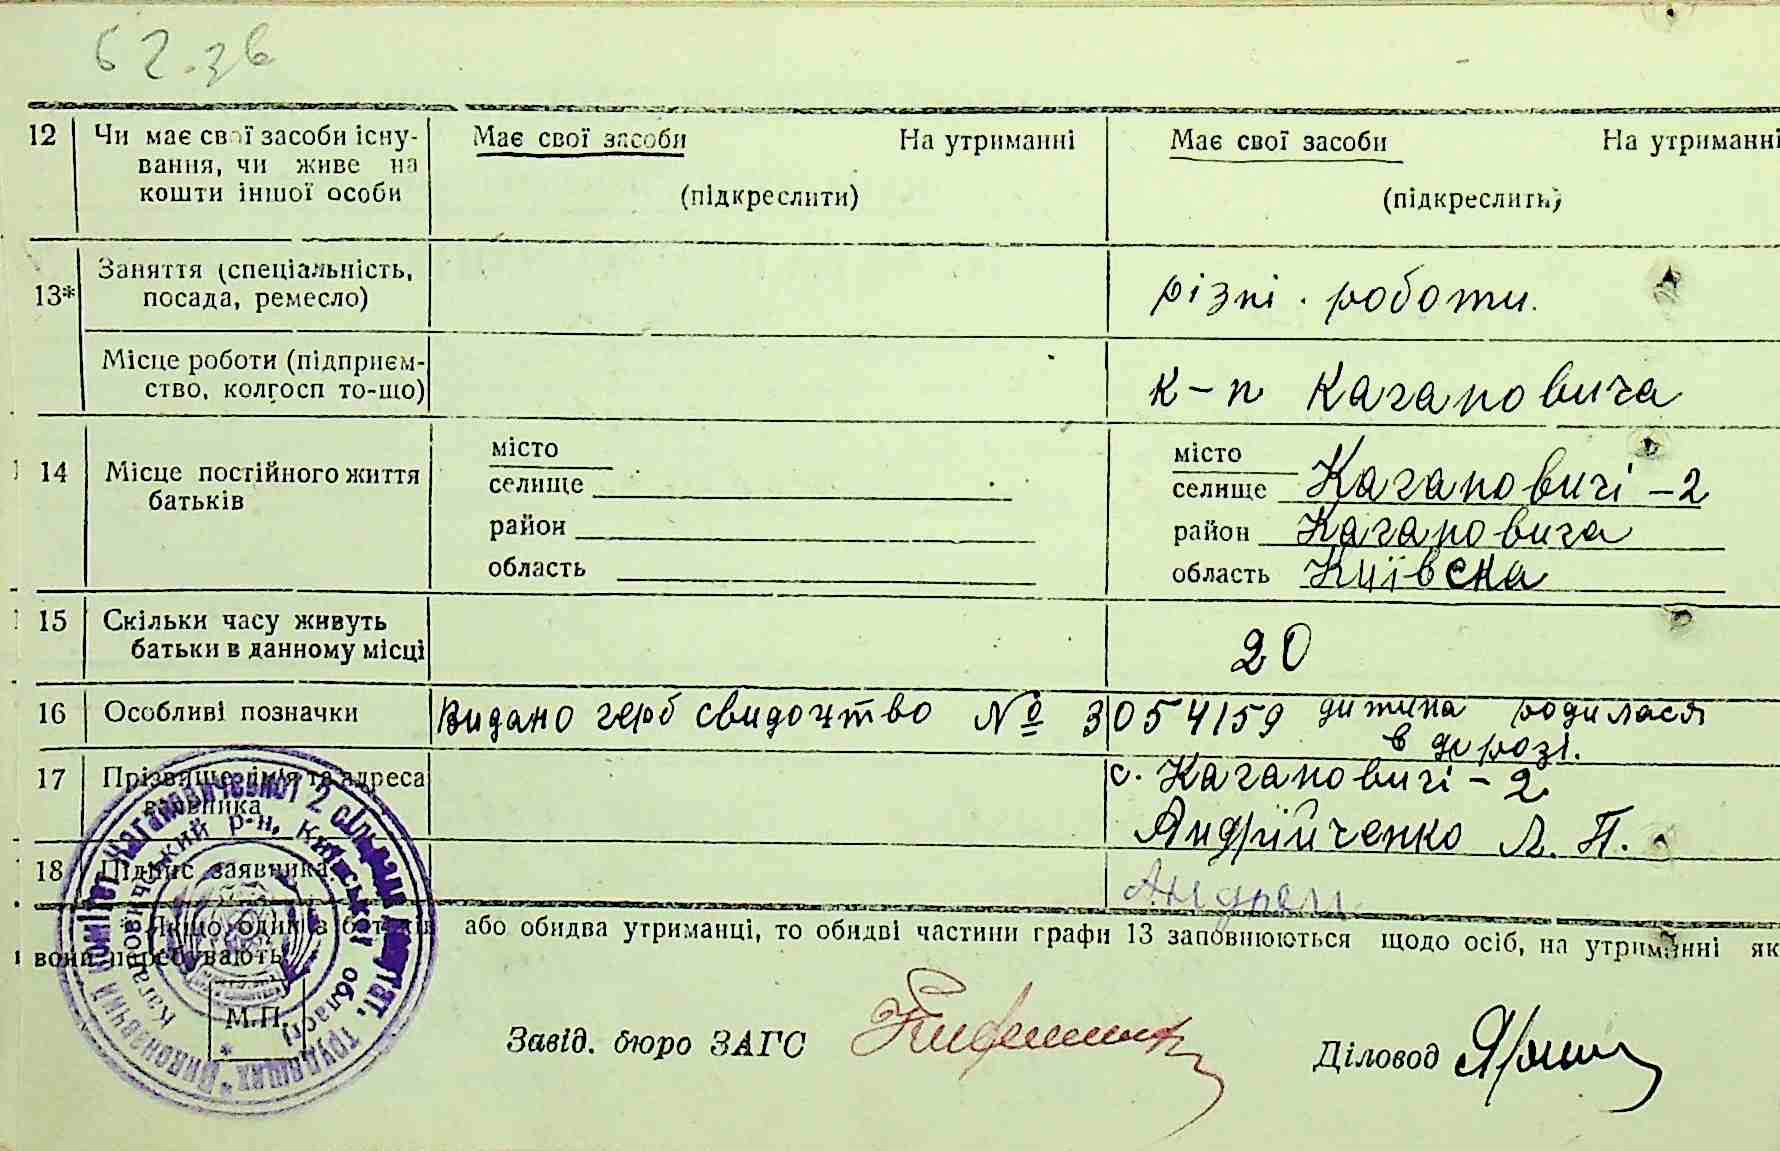 62.зв
12 Чи має свої засоби існу- Має свої засоби На утриманні Має свої засоби На утриманні
вання, чи живе на
кошти іншої особи (підкреслити) (підкреслить)
Заняття (спеціальність,
13* посада, ремесло) різні . роботи.
Місце роботи (підприєм-
ство, колгосп то-що) к-п Кагановича
місто місто
14 Місце постійного життя селище селище Кагановичі-2
батьків район район Кагановича
область область Київска
15 Скільки часу живуть
батьки в данному місці 20
16 Особливі позначки Видано герб свидоцтво № 3054159 дитина родилася
в дорозі.
17 Прізвище, імя та адреса с. Кагановичі-2
заявника Андрійченко Л. П.
18 Підпис заявника
* Якщо один з батьків або обидва утриманці, то обидві частини графи 13 заповнюються щодо осіб, на утриманні як
вони перебувають
М.П. Завід. бюро ЗАГС Діловод
Виконавчий комітет Кагановичевкої 2 сільради депутат. трудящих *
Кагановичський р-н, Київської області